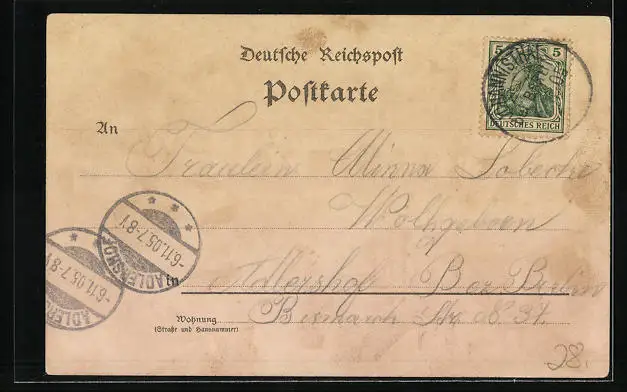 Deutsche Reichspost
Postkarte
5 5
DEUTSCHES REICH
An
Fräulein Minna
Wohlgeboren
-6.11.05.7-8V
ADLERSHOF
-6.11.05.7-8V
ADLERSHOF
in Adlershof Bez. Berlin
Wohnung
(Straße und Hausnummer)
Bismarck Str. 37.
28.